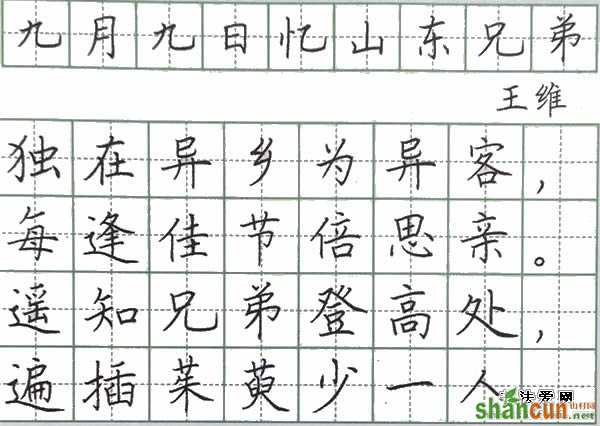 九月九日忆山东兄弟
王维
独在异乡为异客，
每逢佳节倍思亲。
遥知兄弟登高处，
遍插茱萸少一人
法爱网
shancun
山村网